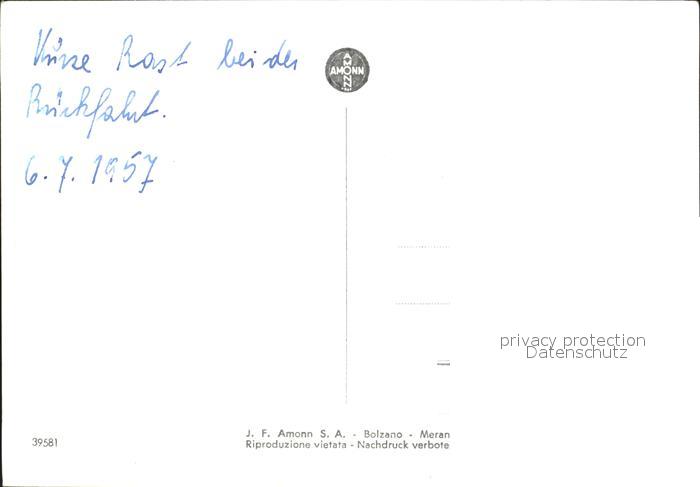 Kurze Rast bei der
Rückfahrt.
6.7.1957
AMONN
AMONN
privacy protection
Datenschutz
39581
J. F. Amonn S. A. - Bolzano - Meran
Riproduzione vietata - Nachdruck verbote